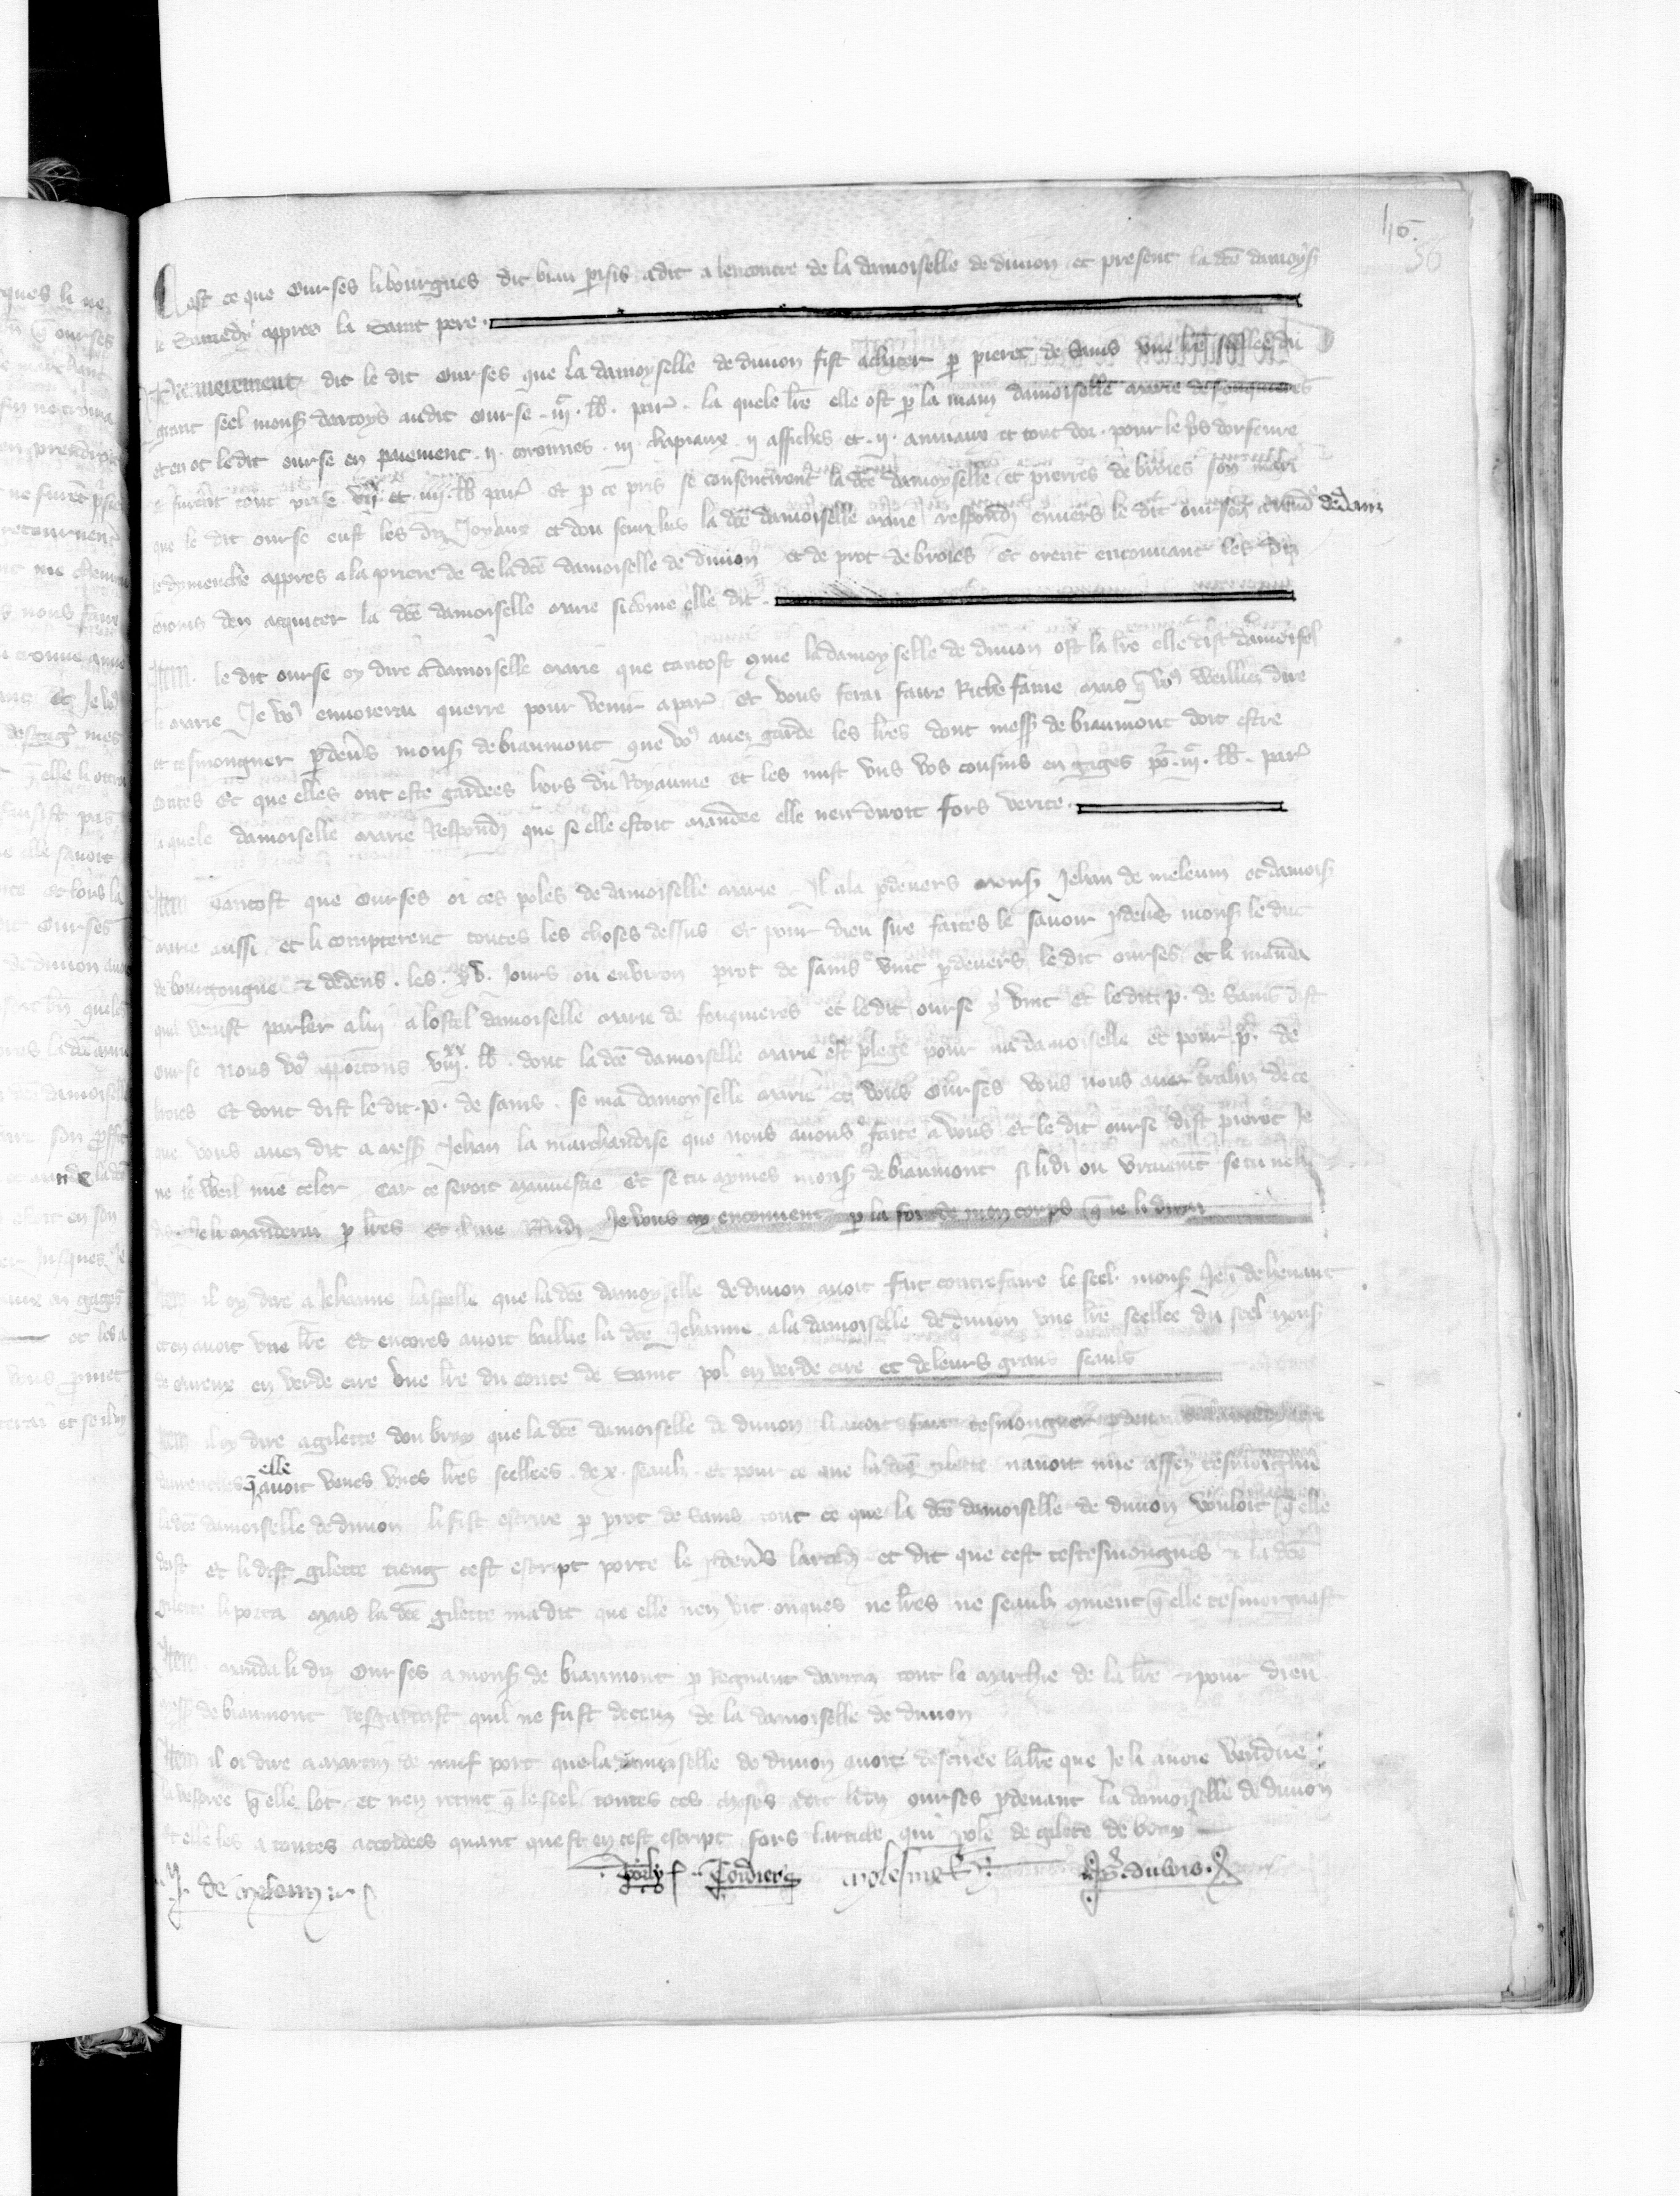 46.
56
Cest ce que Ourses li bourgues dit biau parisis a dit a lencontre de la damoiselle de diuion et present la dce damoys
le Samedy appres la Saint pere
Premierement dit le dit Ourses que la damoyselle de diuion fist achater p pierot de Sains vne lre seellee du
grant seel mons dartoys audit Ourse iij c lb par la quele lre elle ost p la main damoiselle marie de fouquieres
et en ot le dit ourse en paiement ij coronnes iij chapiaux ij affiches et ij anniaux et tout dor pour le pris dorfeure
et furent tout prise et iiij lb par et p ce pris se consentirent la dce damoyselle et pierres de broies son mari
que le dit ourse eust les diz Joyaux et dou seurplus la dce damoiselle marie respondi enuers le dit ourson a rendre dedens
le dymenche appres a la priere de de la dce damoiselle de diuion et de prot de broies et orent enconuant les diz
broies den aquiter la dce damoiselle marie si come elle dit
Item le dit ourse oy dire a damoiselle marie que tantost que la damoyselle de diuion ost la lre elle dist damoisel
le marie Je vo enuoierai querre pour venir a par et vous ferai faire Riche fame mais q vo weilliez dire
et tesmongner pdeuers mons de biaumont que vo auez garde les lres dont mess de biaumont doit estre
contes et que elles ont este gardees hors du Royaume et les mist vns vos cousins en gages po iij c lb par
la quele damoiselle marie Respondi que se elle estoit mandee elle nen diroit fors verite
Item Tantost que Ourses oi ces poles de damoiselle marie Il ala pdeuers mons Jehan de meleun et damois
marie aussi et li compterent toutes les choses dessus et pour dieu sire faites le sauoir pdeuers mons le duc
de bourgongne & dedens les xv Jours ou enuiron prot de sains vint pdeuers le dit ourses et li manda
quil venist parler a luy a lostel damoiselle marie de fouquieres et le dit ourse y vint et le dit p de Sains dist
ourse nous vo apportons viij xx lb dont la dce damoiselle marie est plege pour ma damoiselle et pour p de
broies et dont dist le dit p de sains se ma damoyselle marie et vous Ourses vous nous auez trahiz de ce
que vous auez dit a mess Jehan la marchandise que nous auons faite a vous et le dit ourse dist pierot Je
ne te weil mie celer Car ce seroit mauuestie et se tu aymes mons de biaumont si li di ou vraiement se tu neli
dis Je li manderai p lres et il me Rndi Je vous ay enconuent p la foi de mon corps q ie li dirai
Item il oy dire a Jehanne laspelle que la dce damoyselle de diuion auoit fait contrefaire le seel mons Jeh de henaut
et en auoit vne lre et encores auoit baillie la dce Jehanne a la damoiselle de diuion vne lre seellee du seel mons
de eureux en verde cire vne lre du conte de Saint pol en verde cire et de leurs grans seaulx
Item il oy dire a gilette dou bray que la dce damoiselle de diuion li auoit fait tesmongner pdeuant
q elle auoit veues vnes lres seellees de x seaulz et pour ce que la dce gilette nauoit mie assez tesmoigne
la dce damoiselle de diuion li fist escrire p prot de sains tout ce que la dce damoiselle de diuion vouloit q elle
deist et li dist gilette tieng cest escript porte le pdeuers et dit que cest tes tesmongnes & la dce
gilette li porta mais la dce gilette ma dit que elle nen vit onques ne lres ne seaulz qment q elle tesmoignast
Item manda li diz Ourses a mons de biaumont p Regnaut tout le marchie de la lre & pour dieu
mess de biaumont resgardast quil ne fust deceuz de la damoiselle de diuion
Item il oi dire a martin de nuef port que la damoiselle de diuion auoit descriee la lre que Je li auoie vendue
la vespree q elle lot et nen retint q le seel toutes ces choses a dit li diz ourses pdeuant la damoiselle de diuion
et elle les a toutes accordees quant que st en cest escript fors larticle qui pole de gilete de bray
J. de meleun Cordier molesmes